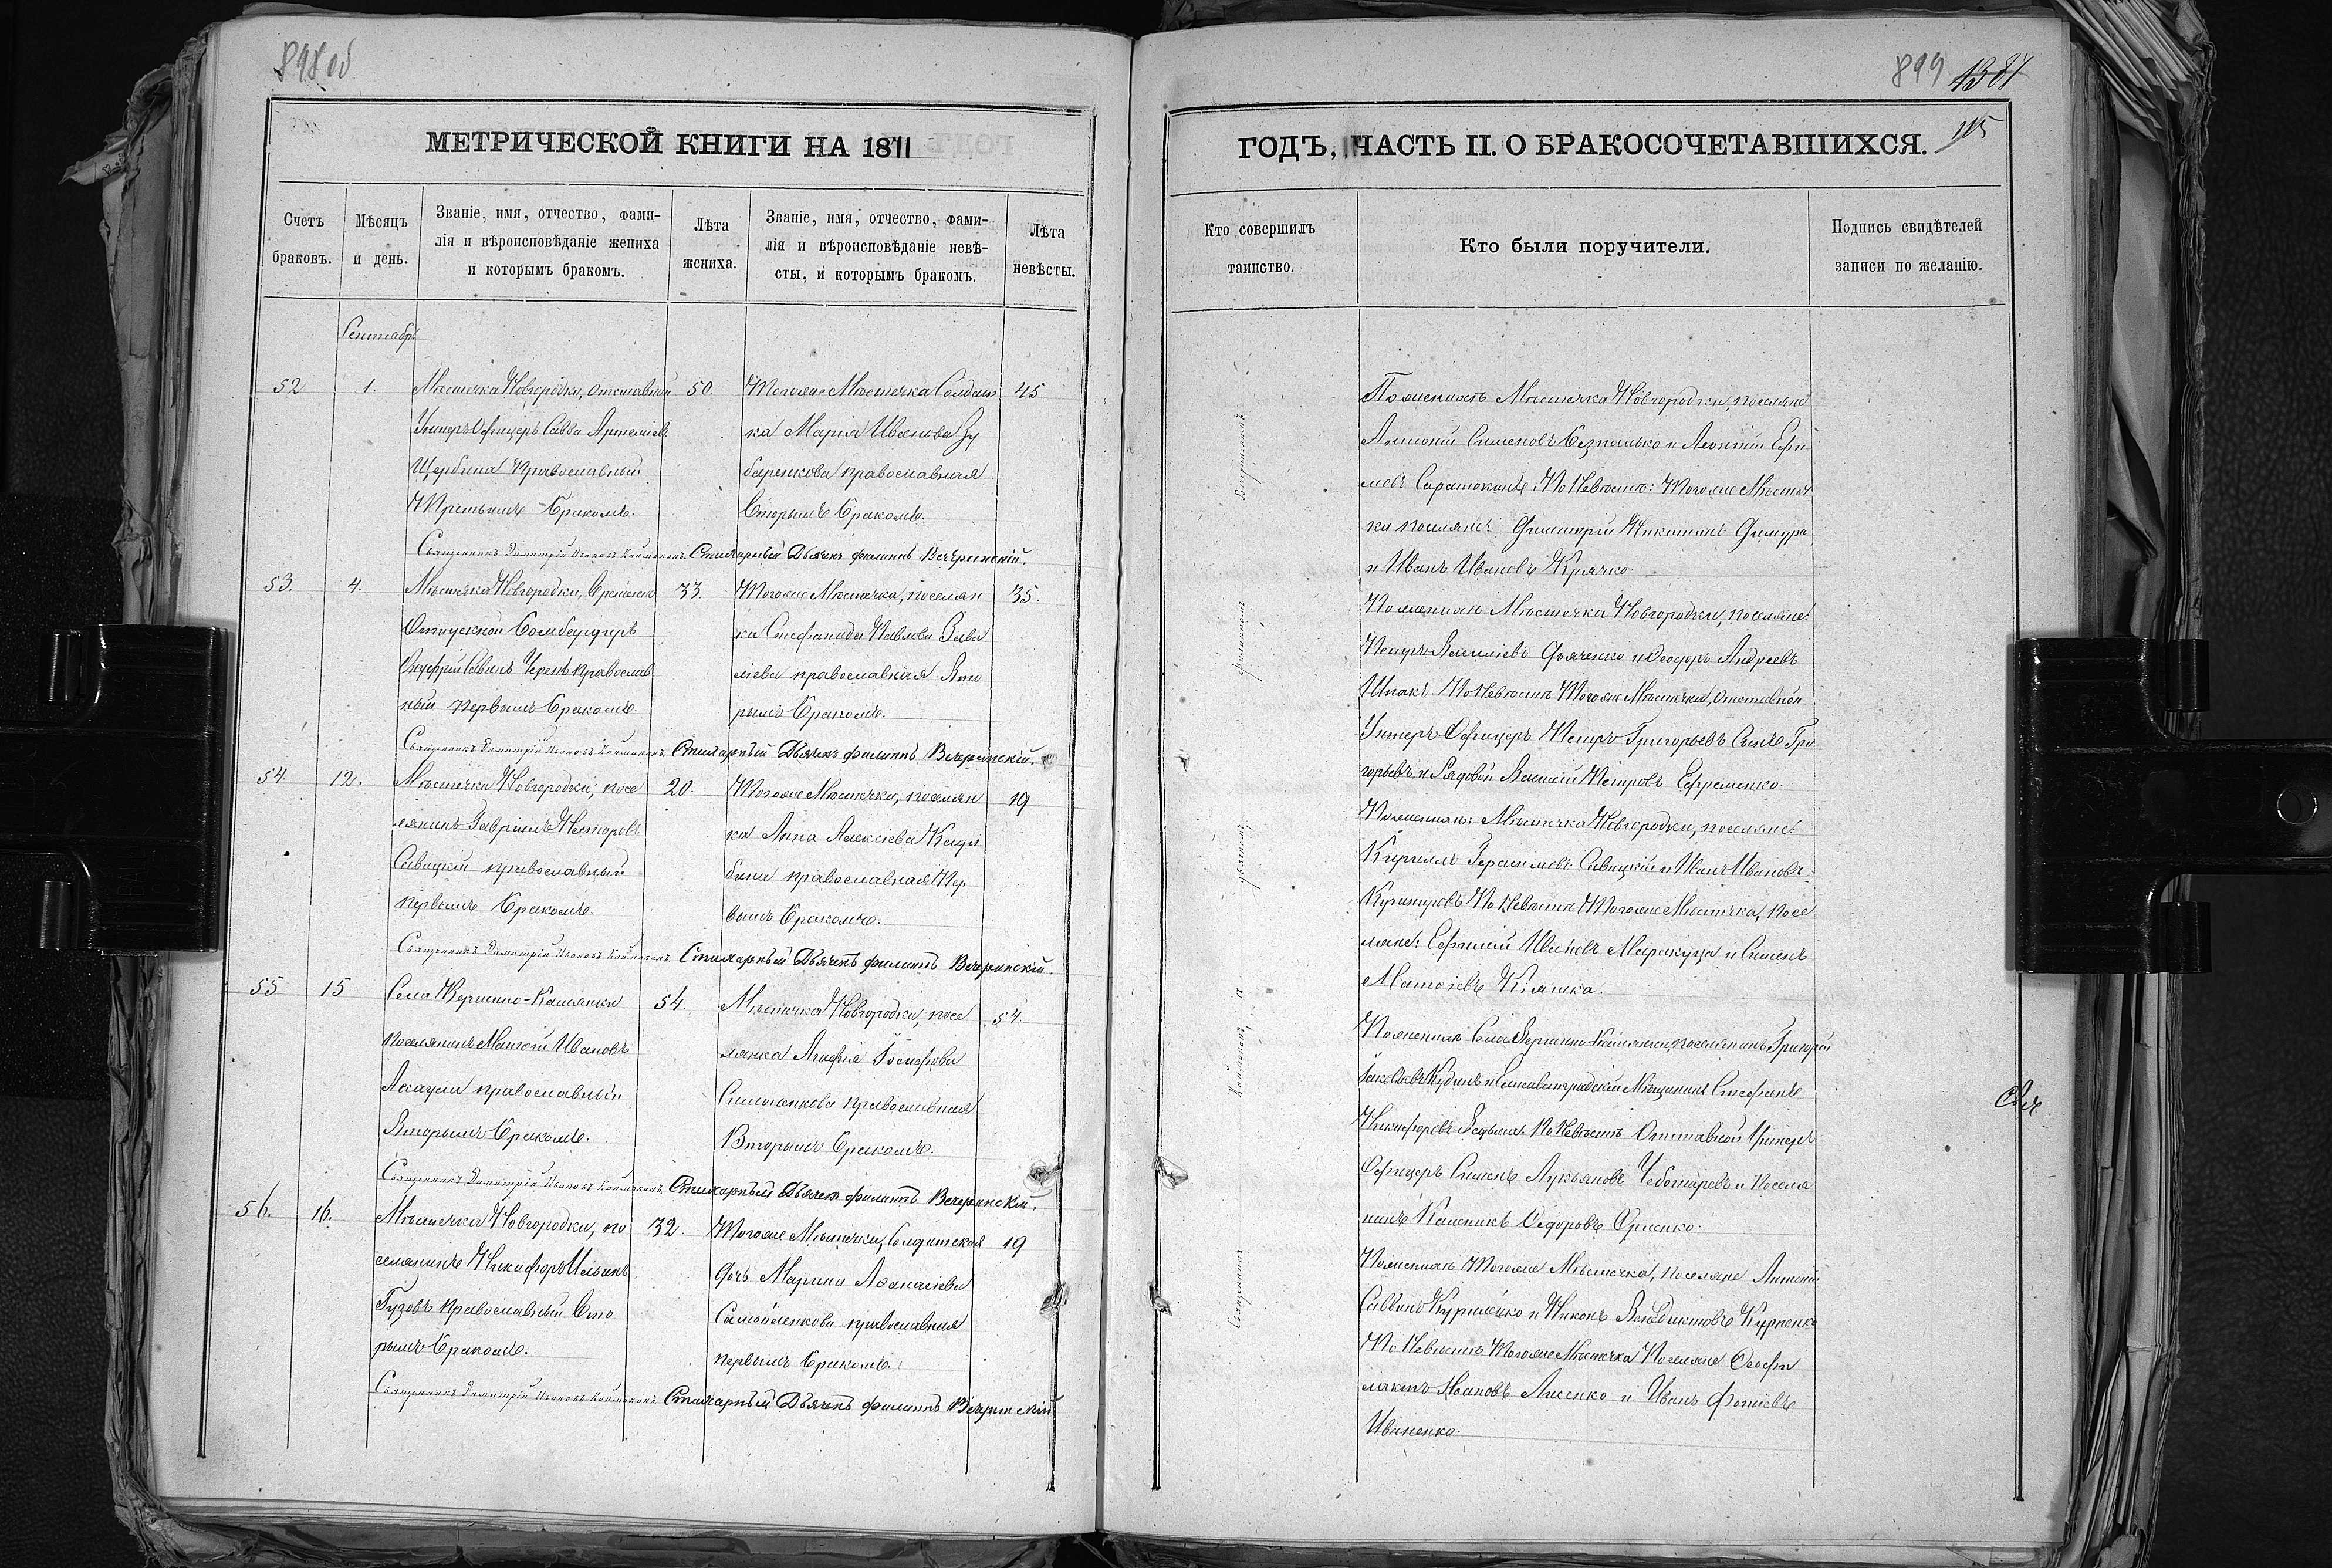 898 об
МЕТРИЧЕСКОЙ КНИГИ НА 1871
Счетъ браковъ.
Мѣсяцъ и день.
Званіе, имя, отчество, фами-
лія и вѣроисповѣданіе жениха
и которымъ бракомъ.
Лѣта жениха.
Званіе, имя, отчество, фами-
лія и вѣроисповѣданіе невѣ-
сты, и которымъ бракомъ.
Лѣта невѣсты.
Сентябрь
52
1.
Мѣстечка Новгородки, отставной
Унтеръ Офицеръ Савва Артеміевъ
Щербина Православный
Третьимъ Бракомъ.
50.
Тогоже Мѣстечка Солдат
ка Марія Иванова Зу
баренкова православная
Вторымъ Бракомъ.
45
Священникъ Димитрій Ивановъ Стихарный Дьячекъ Филиппъ Вечеринскій.
53.
4.
Мѣстечка Новгородки, Временно
Отпускной Бомбардиръ
Онуфрій Саввинъ Черенъ Православ
ный Первымъ Бракомъ.
33.
Тогоже Мѣстечка, поселян
ка Стефанида Павлова
православная Вто
рымъ Бракомъ.
35.
Священникъ Димитрій Ивановъ Стихарный Дьячекъ Филиппъ Вечеринскій.
54
12.
Мѣстечка Новгородки, посе
лянинъ Гавріилъ Несторовъ
Савицкій православный
первымъ Бракомъ.
20.
Тогоже Мѣстечка, поселян
ка Анна Алексіева
православная Пер
вымъ Бракомъ.
19
Священникъ Димитрій Ивановъ Стихарный Дьячекъ Филиппъ Вечеринскій.
55
15
Села Вершино-Камянки
поселянинъ Матвій Ивановъ
православный
Вторымъ Бракомъ.
54.
Мѣстечка Новгородки, посе
лянка Агафія Іосифова
православная
Вторымъ Бракомъ.
54.
Священникъ Димитрій Ивановъ Стихарный Дьячекъ Филиппъ Вечеринскій.
56.
16.
Мѣстечка Новгородки, по
селянинъ Никифоръ Ильинъ
Гузовъ православный Вто
рымъ Бракомъ.
32.
Тогоже Мѣстечка, Солдатская
дочь Марина Аѳанасіева
Самойленкова православная
первымъ Бракомъ.
19
Священникъ Димитрій Ивановъ Стихарный Дьячекъ Филиппъ Вечеринскій
899 1387
115
ГОДЪ, ЧАСТЬ II. О БРАКОСОЧЕТАВШИХСЯ.
Кто совершилъ таинство.
Кто были поручители.
Подпись свидѣтелей
записи по желанію.
Священникъ дьячкомъ Филиппомъ Вечеринскимъ
По женихѣ Мѣстечка Новгородки, поселяне
Антоній Сименовъ Безпалько и Леонтій Ефи
мовъ По Невѣстѣ: Тогоже Мѣстеч
ка поселяне: Димитрій Никитинъ
и Иванъ Ивановъ Крячко.
По женихѣ Мѣстечка Новгородки, поселяне:
Петръ Василіевъ Дяченко и Ѳеодоръ Андреевъ
Шпакъ. По Невѣстѣ Тогоже Мѣстечка, отставной
Унтеръ Офицеръ Петръ Григорьевъ Сынъ Гри
горьевъ и Рядовой Василій Петровъ Ефременко.
По женихѣ: Мѣстечка Новгородки, поселяне:
Кириллъ Герасимовъ Савицкій и Иванъ Ивановъ
По Невѣстѣ Тогоже Мѣстечка, посе
ляне: Ивановъ Маракуца и Сименъ
По женихѣ Села Вершино-Камянки, поселянинъ Григорій
Іаковлевъ и Елисаветградскій Мѣщанинъ Стефанъ
Никифоровъ Ведьма. По Невѣстѣ Отставной Унтеръ
Офицеръ Сименъ Лукьяновъ Чеботаревъ и Поселя
нинъ Ѳедоровъ
По женихѣ Тогоже Мѣстечка, поселяне Антоній
Саввинъ и Никонъ Венедиктовъ
По Невѣстѣ Тогоже Мѣстечка Поселяне Ѳеофи
лактъ Ивановъ Лисенко и Иванъ
Иваненко.